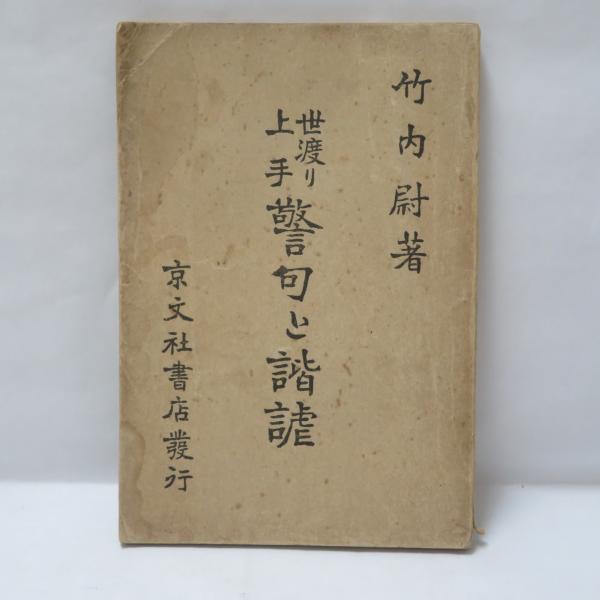 竹内尉著
世渡り
上手
警句と諧謔
京文社書店發行